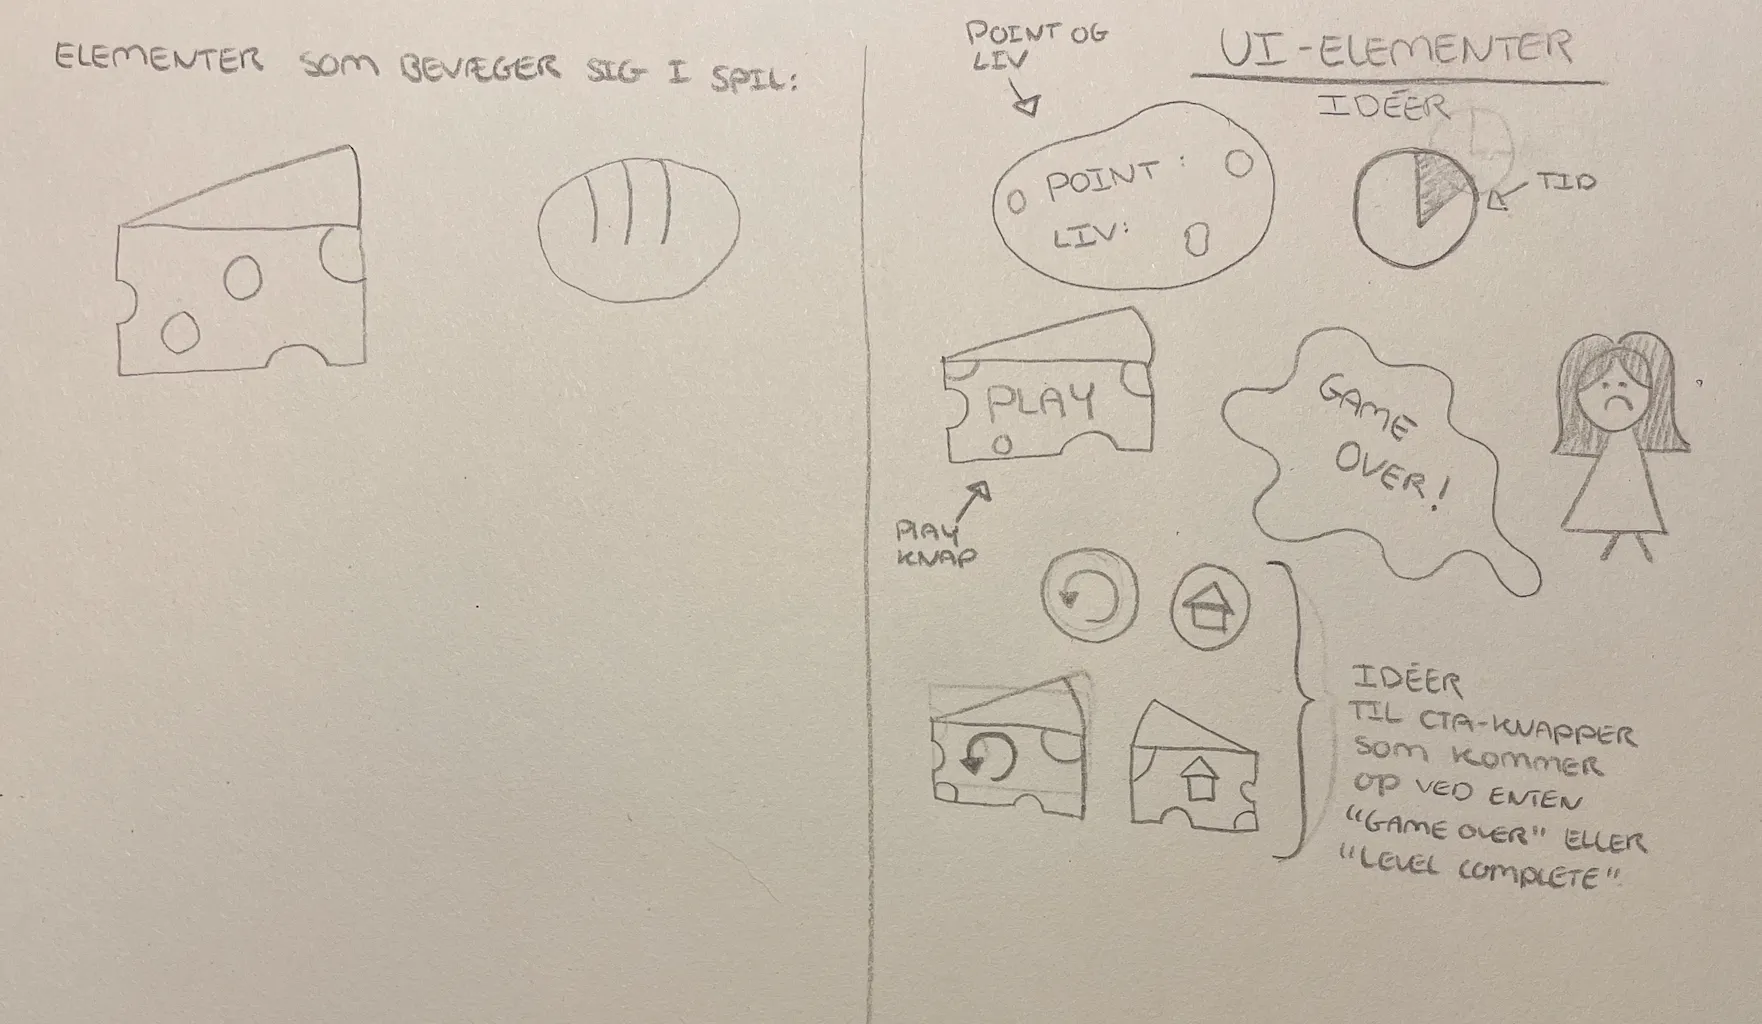 ELEMENTER SOM BEVÆGER SIG I SPIL:
POINT OG
LIV
UI-ELEMENTER
IDÉER
POINT :
LIV:
TID
PLAY
PLAY
KNAP
GAME
OVER!
IDÉER
TIL CTA-KNAPPER
SOM KOMMER
OP VED ENTEN
"GAME OVER" ELLER
"LEVEL COMPLETE"